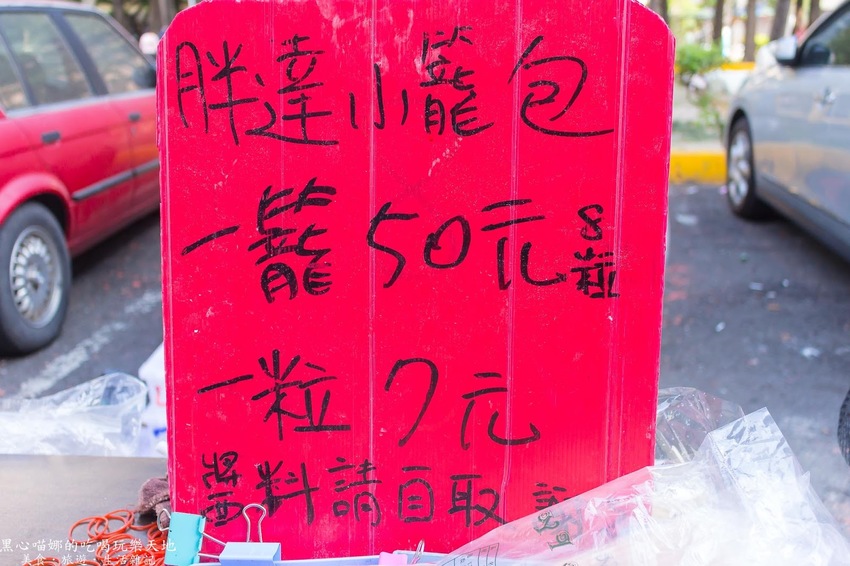 胖達小籠包
一籠50元8粒
一粒7元
醬料請自取
黑心喵娜的吃喝玩樂天地
美食‧旅遊‧生活雜記